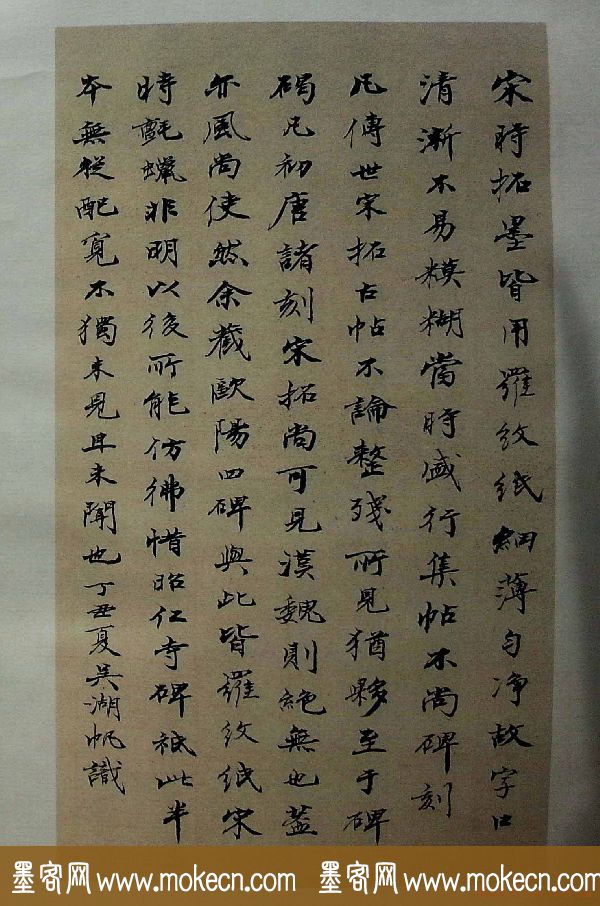 宋時拓墨皆用羅紋紙細薄匀净故字口
清漸不易模糊當時盛行集帖不尚碑刻
凡傳世宋拓古帖不論整殘所見猶夥至于碑
碣凡初唐諸刻宋拓尚可見漢魏則絕無也蓋
亦風尚使然余藏歐陽四碑與此皆羅紋紙宋
時氈蠟非明以後所能仿彿惜昭仁寺碑祇此半
本無從配寬不獨未見且未聞也丁丑夏吳湖帆識
墨客网 www.mokecn.com 墨客网 www.mokecn.com